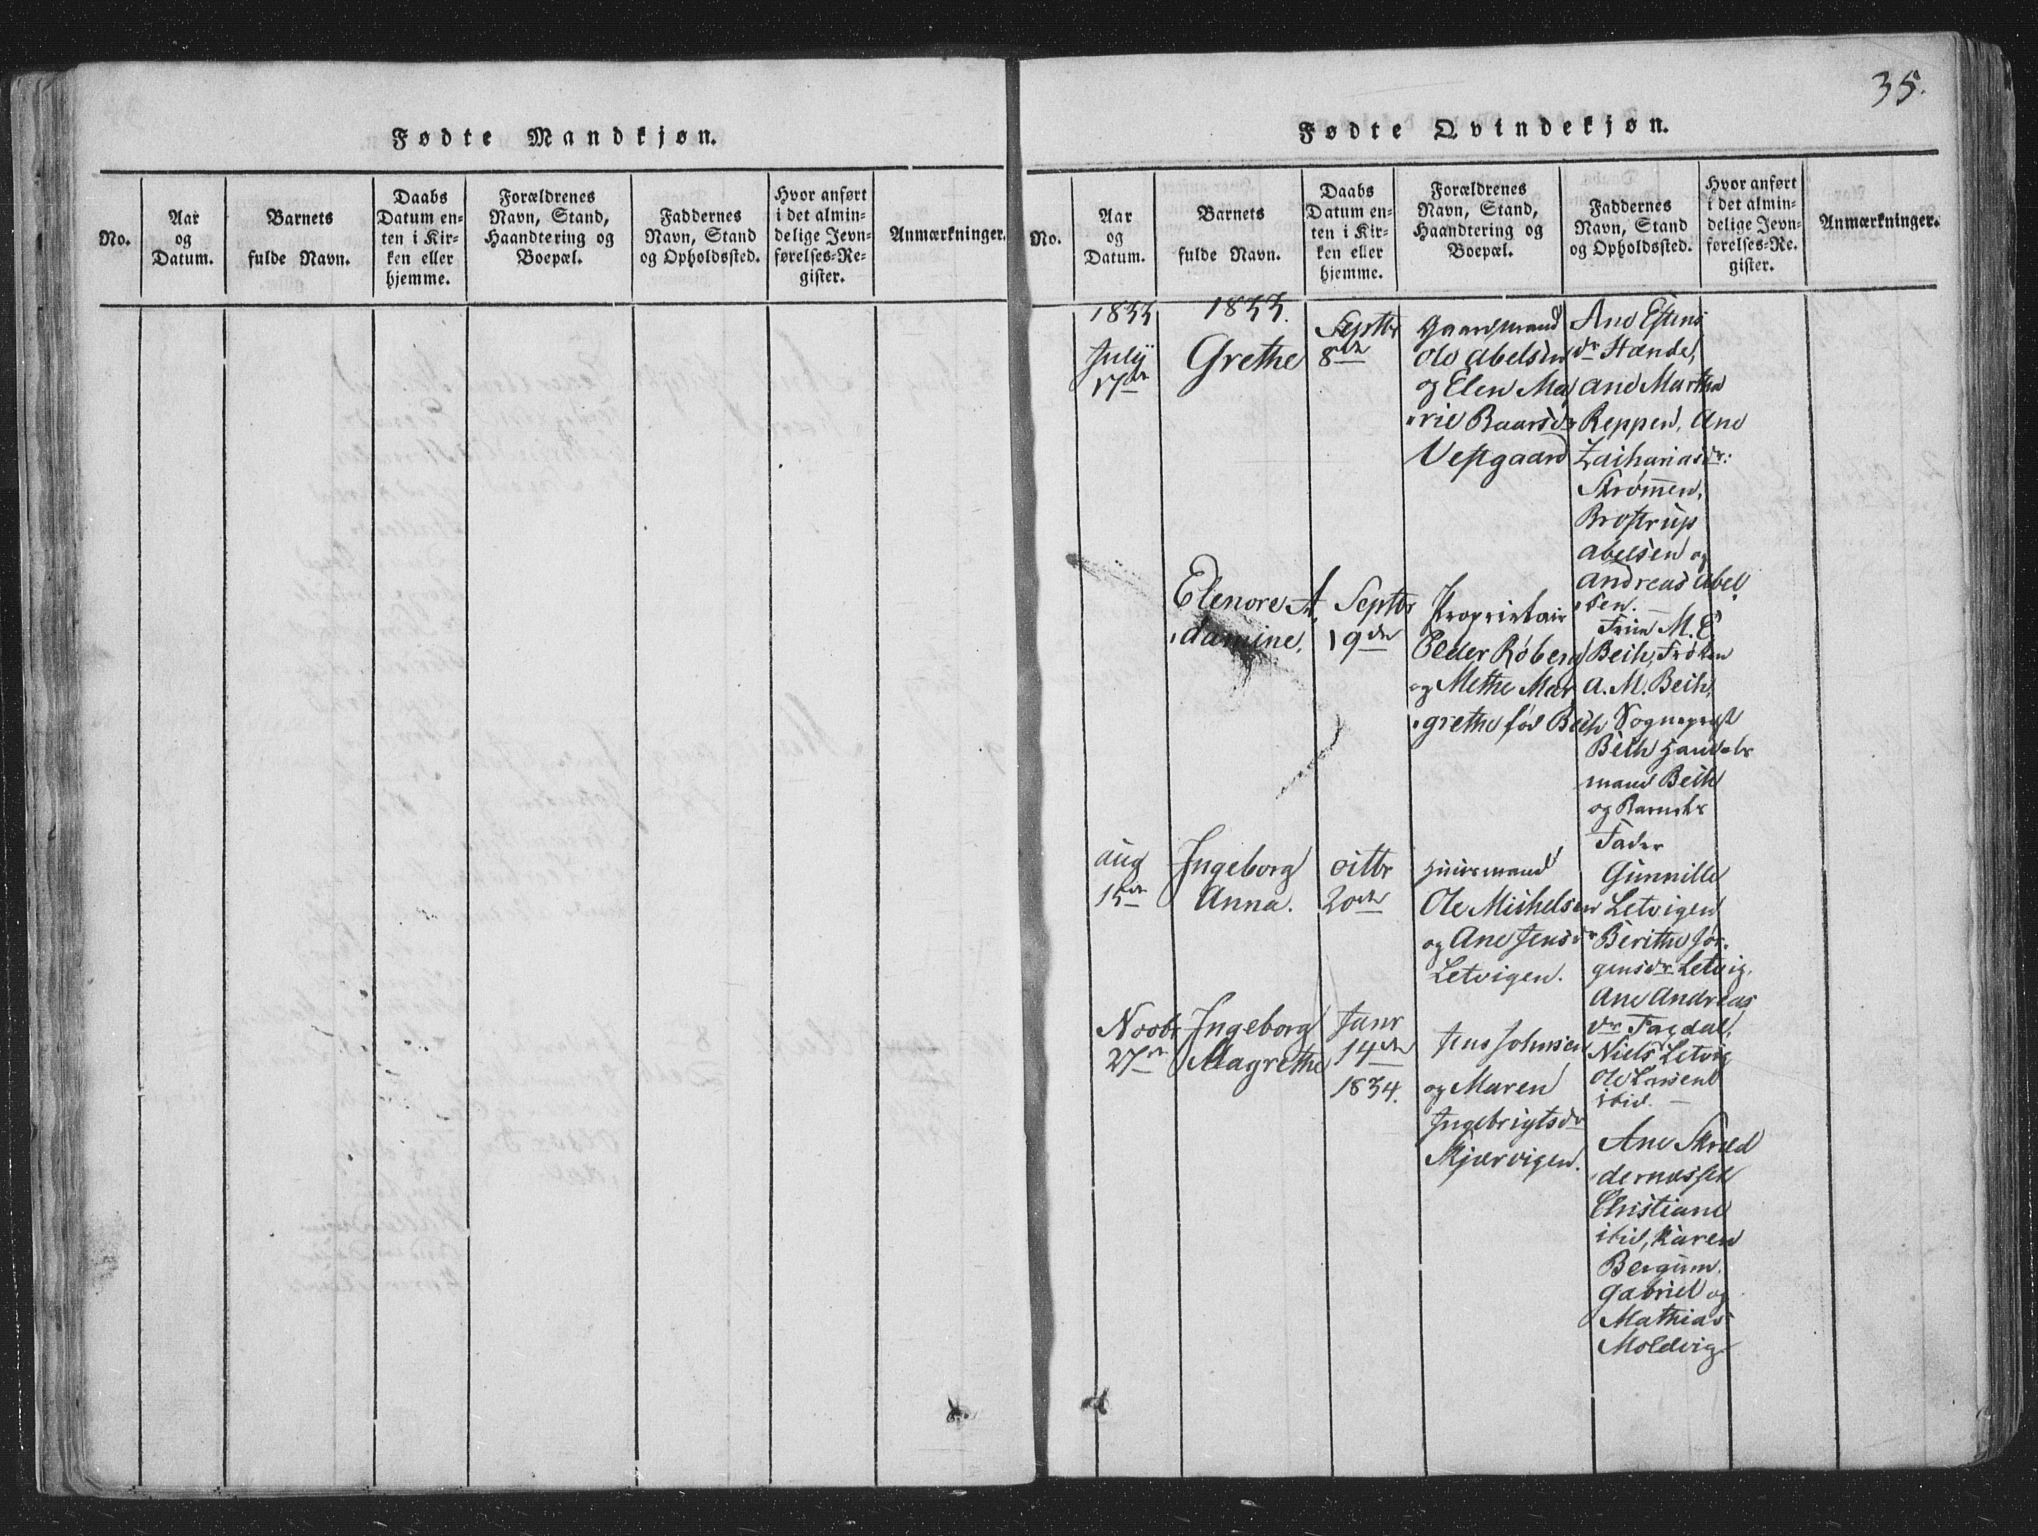 35.
Fødte Mandkjøn.
No.
Aar
og
Datum.
Barnets
fulde Navn.
Daabs
Datum en-
ten i Kir-
ken eller
hjemme.
Forældrenes
Navn, Stand,
Haandtering og
Boepæl.
Faddernes
Navn, Stand
og Opholdssted.
Hvor anført
i det almin-
delige Jevn-
førelses-Re-
gister.
Anmærkninger.
Fødte Qvindekjøn.
No.
Aar
og
Datum.
Barnets
fulde Navn.
Daabs
Datum en-
ten i Kir-
ken eller
hjemme.
Forældrenes
Navn, Stand,
Haandtering og
Boepæl.
Faddernes
Navn, Stand
og Opholdssted.
Hvor anført
i det almin-
delige Jevn-
førelses-Re-
gister.
Anmærkninger.
1833
July
17de
1833.
Grethe
Septbr
8de
Gaardmand
Ole Abelsen
og Elen Ma,
rie Baarsdr
Vestgaard
Ane Estens
dr Hande,
Ane Martha
Reppen, Ane
Zachariasdr:
Strømen,
Brostrup
Abelsen og
Andreas Abel
sen.
Elenore A,
damine,
Septbr
19de
Proprietair
Elder Røberg
og Methe Mar
grethe fød Bech
Frue M. C
Bech, Frøken
A. M. Bech,
Sognepræst
Bech Handels
mand Bech
og Barnets
Fader
Aug
15de
Ingeborg
Anna.
Octbr
20de
Huusmand
Ole Michelsen
og Ane Jensdr
Letvigen.
Gunnille
Letvigen
Berithe Jør,
gensdr Letvig,
Ane Andreas
dr Fagdal,
Niels Letvig
Ole Larsen
ibid.
Novbr
27de
Ingeborg
Magrethe
Janr
14de
1834.
Jens Johnsen
og Maren
Ingebrigtsdr
Skjærvigen.
Ane Skræd
dernæsset
Christiane
ibid, Karen
Bergum.
Gabriel og
Mathias
Moldvig